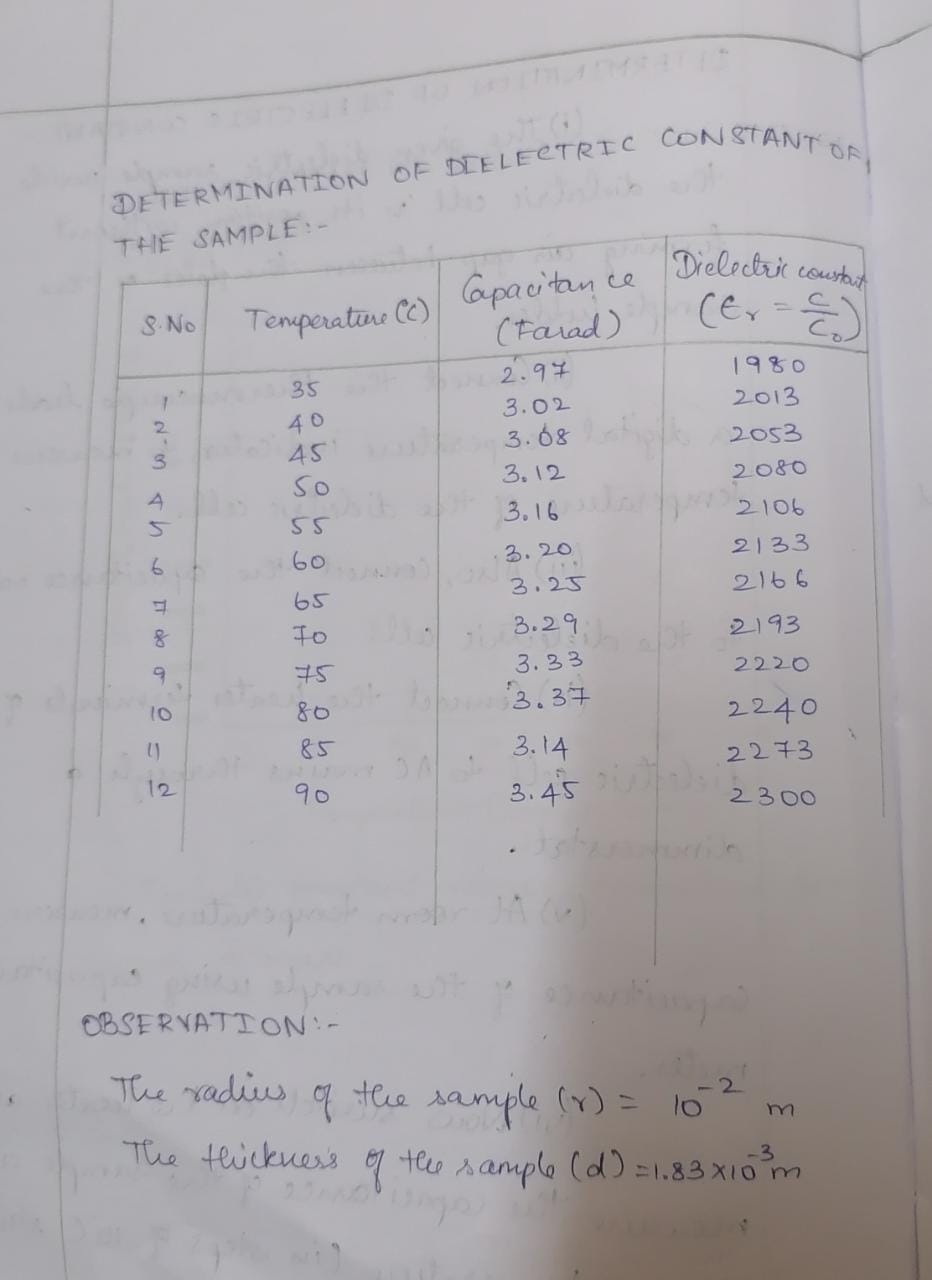 DETERMINATION OF DIELECTRIC CONSTANT OF
THE SAMPLE:-
S.No Temperature (°C) Capacitance (Farad) Dielectric constant (Er = C/C₀)
1 35 2.97 1980
2 40 3.02 2013
3 45 3.08 2053
4 50 3.12 2080
5 55 3.16 2106
6 60 3.20 2133
7 65 3.25 2166
8 70 3.29 2193
9 75 3.33 2220
10 80 3.37 2240
11 85 3.14 2273
12 90 3.45 2300
OBSERVATION:-
The radius of the sample (r) = 10⁻² m
The thickness of the sample (d) = 1.83 x 10⁻³ m